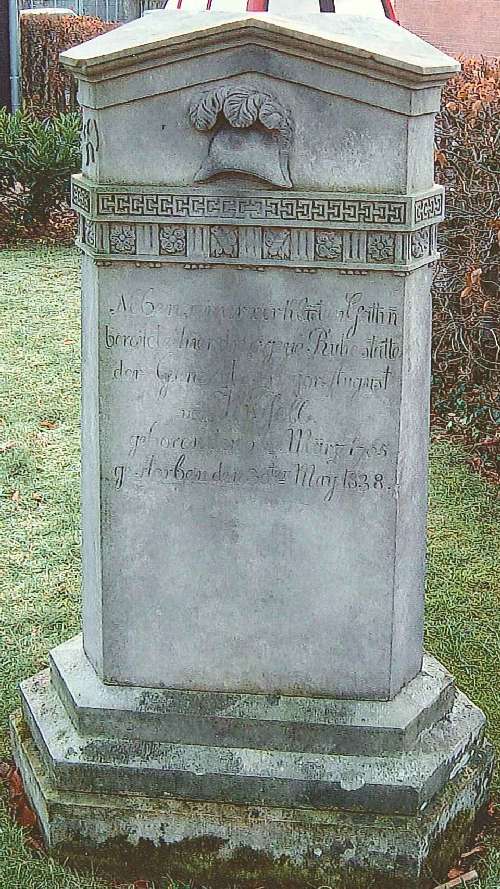 Neben seiner verklärten Gattin
bereitete hier die eigene Ruhestätte
der General Major August
von
geboren den März 1765
gestorben den 30ten May 1838.